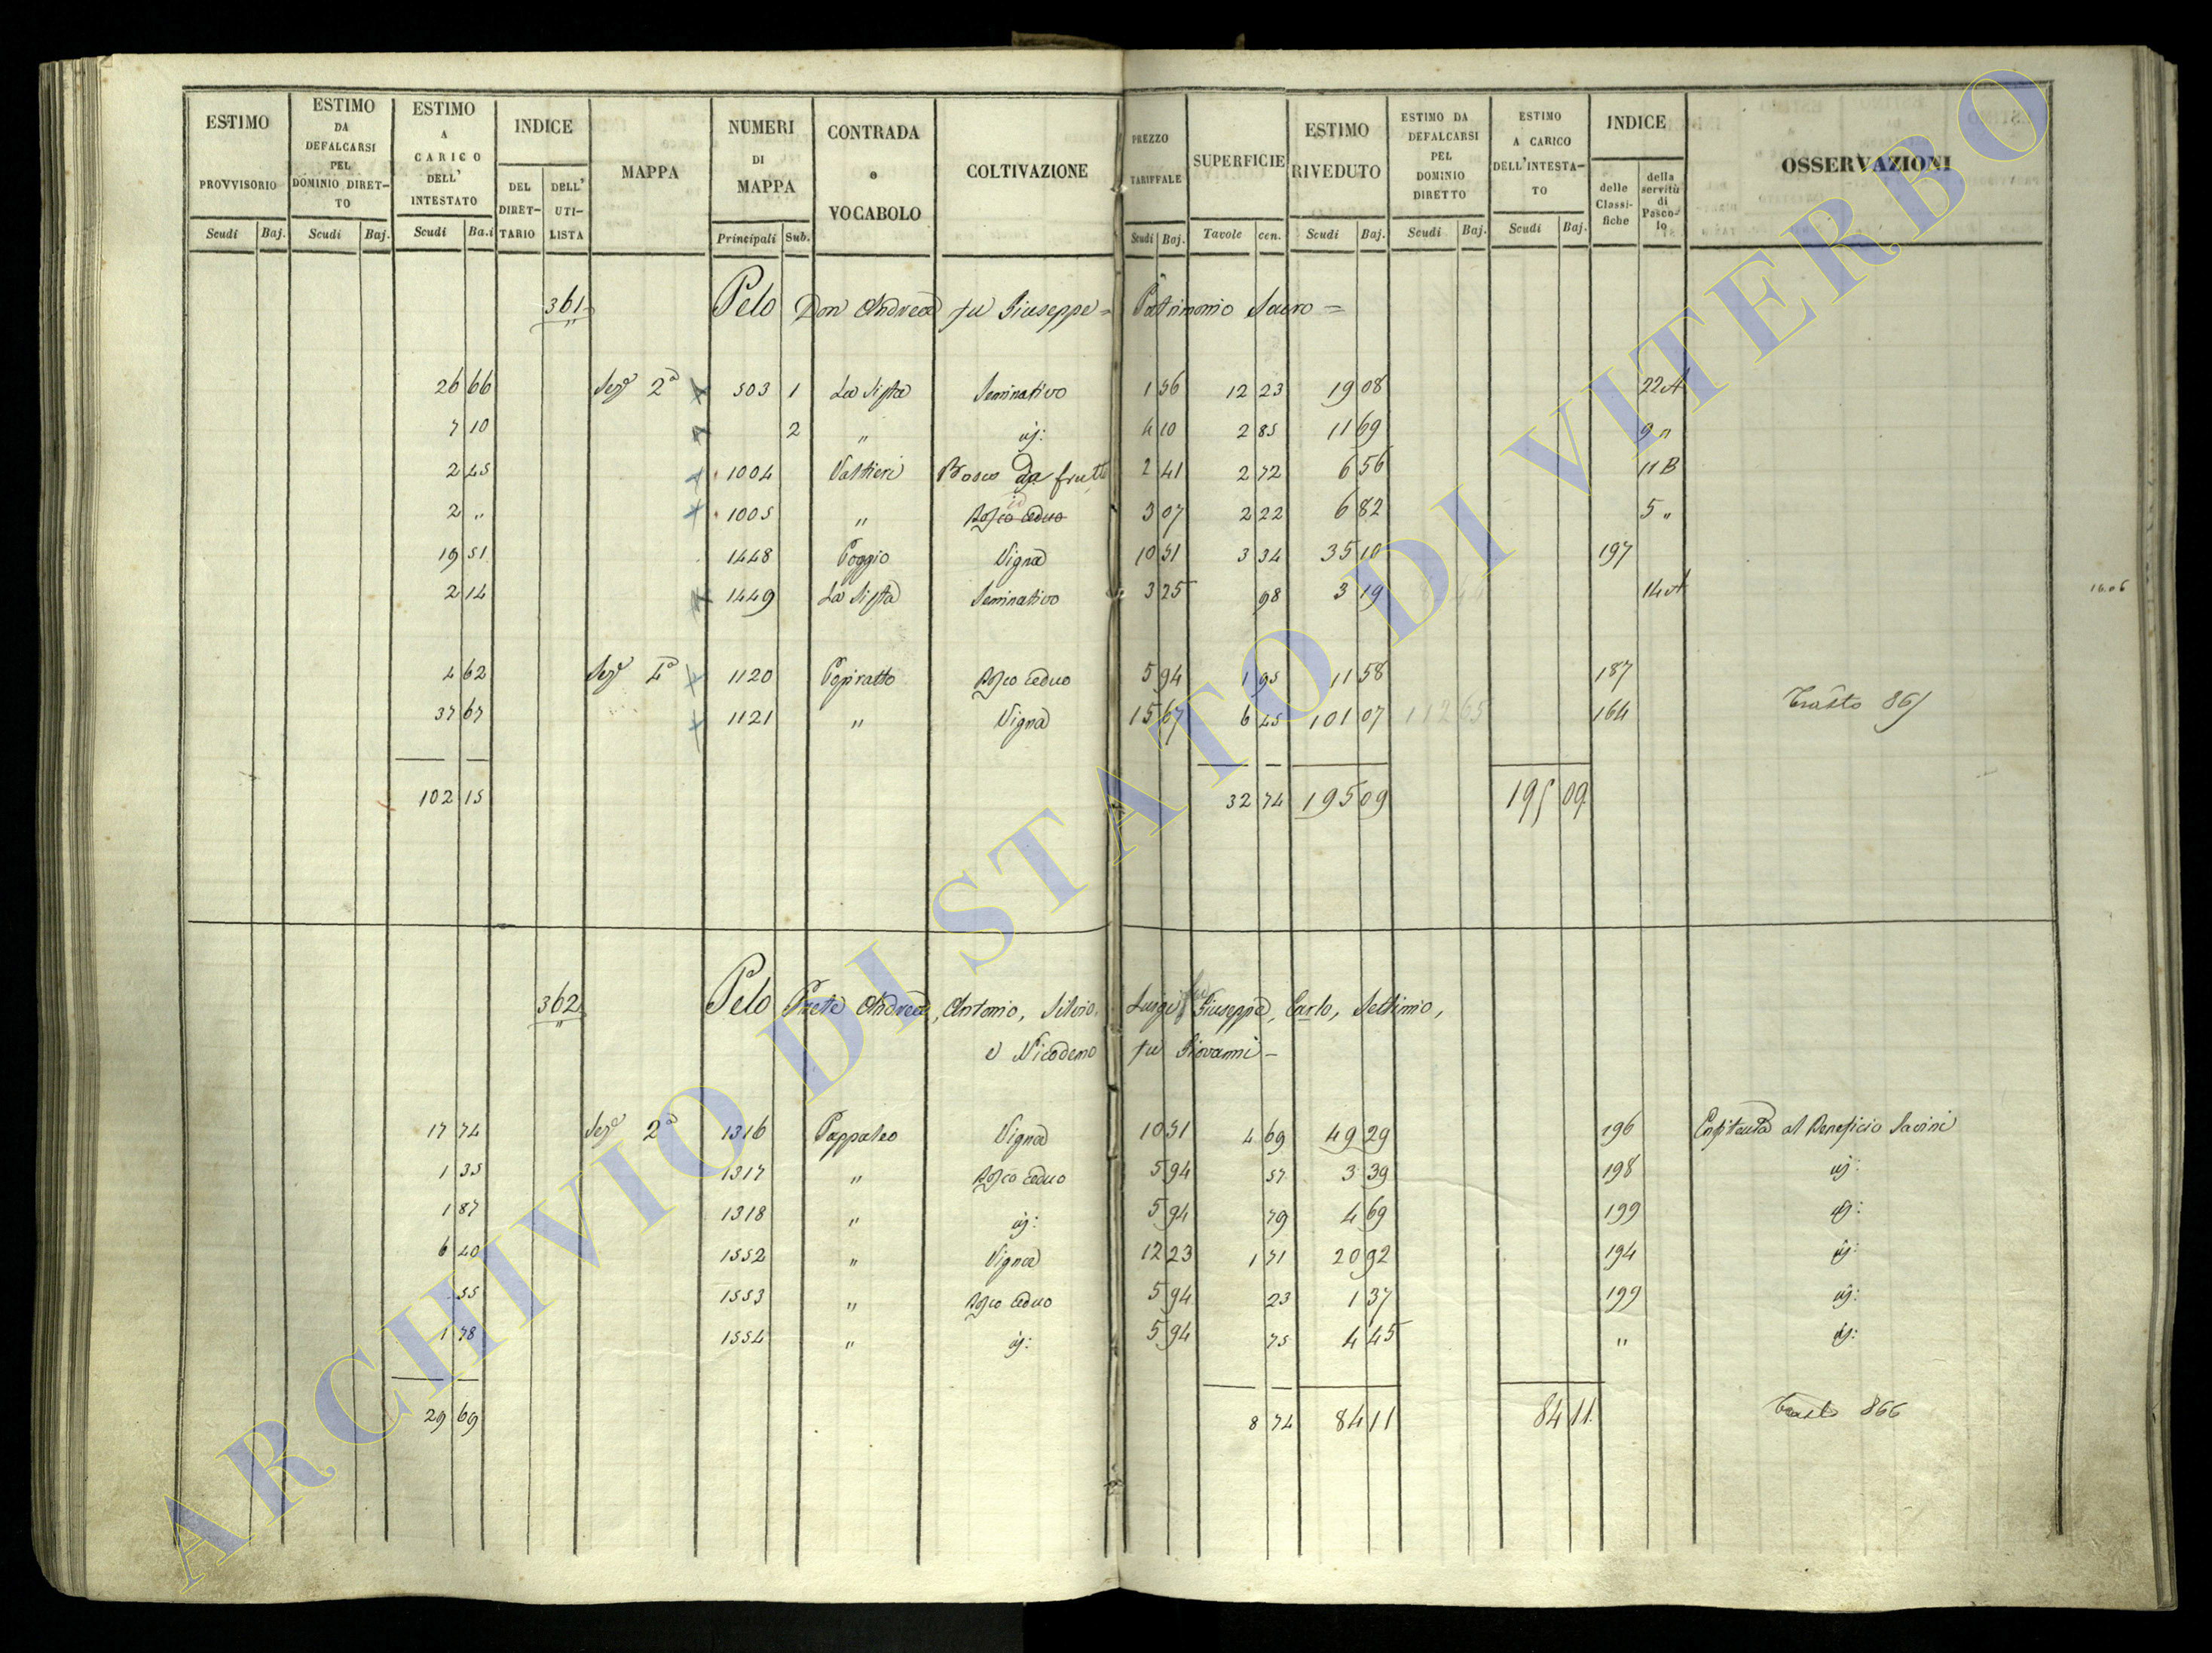 ESTIMO PROVVISORIO | ESTIMO DA DEFALCARSI PEL DOMINIO DIRETTO | ESTIMO A CARICO DELL' INTESTATO | INDICE | MAPPA | NUMERI DI MAPPA | CONTRADA o VOCABOLO | COLTIVAZIONE | PREZZO TARIFFALE | SUPERFICIE | ESTIMO RIVEDUTO | ESTIMO DA DEFALCARSI PEL DOMINIO DIRETTO | ESTIMO A CARICO DELL'INTESTATO | INDICE | OSSERVAZIONI
DEL DIRETTARIO | DELL' UTILISTA | delle Classifiche | della servitù di Pascolo
Scudi | Baj. | Scudi | Baj. | Scudi | Ba.i | Principali | Sub. | Scudi | Baj. | Tavole | cen. | Scudi | Baj. | Scudi | Baj. | Scudi | Baj.
361 Pelo Don Andrea fu Giuseppe = Patrimonio Sacro =
26 66 Sez.e 2a 503 1 La Sista Seminativo 1 56 12 23 19 08 22 A
7 10 2 " id: 4 10 2 85 11 69 9 "
2 45 1004 Valtieri Bosco da frutto 2 41 2 72 6 56 11 B
2 " 1005 " id Bosco ceduo 3 07 2 22 6 82 5 "
19 51 1448 Poggio Vigna 10 51 3 34 35 10 197
2 14 1449 La Sista Seminativo 3 25 98 3 19 14 A
16.06
4 62 Sez.e 4a 1120 Bosco ceduo 5 94 1 95 11 58 187
37 67 1121 " Vigna 15 67 6 45 101 07 112 65 164 Trasto 865
102 15 32 74 195 09 195 09
362 Pelo Prete Andrea, Antonio, Silvio, Luigi fu Giuseppe, Carlo, Settimio,
e Nicodemo fu Giovanni =
17 74 Sez.e 2a 1316 Pappaleo Vigna 10 51 4 69 49 29 196 Enfiteusi al Beneficio Savini
1 35 1317 " Bosco ceduo 5 94 57 3 39 198 id:
1 87 1318 " id: 5 94 79 4 69 199 id:
6 40 1552 " Vigna 12 23 1 71 20 92 194 id:
55 1553 " Bosco ceduo 5 94 23 1 37 199 id:
1 78 1554 " id: 5 94 75 4 45 " id:
29 69 8 74 84 11 84 11 Trasto 866
ARCHIVIO DI STATO DI VITERBO